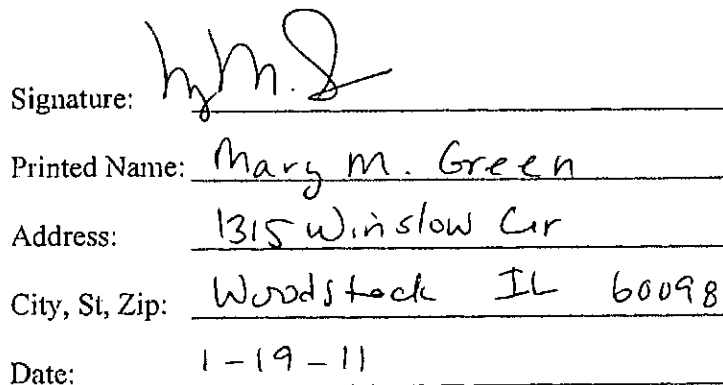 Signature:
Printed Name: Mary M. Green
Address: 1315 Winslow Cir
City, St, Zip: Woodstock IL 60098
Date: 1-19-11